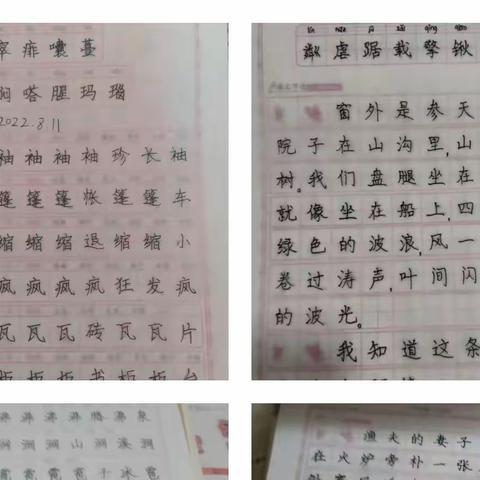 痱囔
嗒腥玛瑙
2022.8.11
袖袖袖袖珍长袖
篷篷篷帐篷篷车
缩缩缩退缩缩小
疯疯疯疯狂发疯
瓦瓦瓦砖瓦瓦片
虐踞载擎锹
窗外是参天
院子在山沟里,山
树。我们盘腿坐在
就像坐在船上,四
绿色的波浪,风一
卷过涛声,叶间闪
的波光。
我知道这条
涧涧涧山涧溪涧
雹雹雹子冰雹
渔夫的妻子
在火炉旁补一张